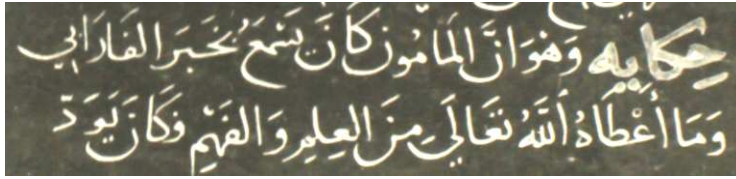 حكايه وَهْوَانَّ المَامُون كَانَ يَسْمَعُ بخَبَرَ الفَارَابي
وَمَا أَعْطَاهُ اللَّهُ تعَالَى مِنَ العِلِمِ وَالفَهْمِ وَكَانَ يَوَدّ